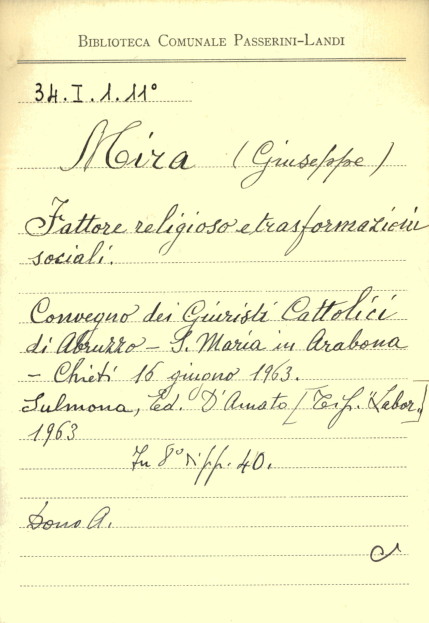 BIBLIOTECA COMUNALE PASSERINI-LANDI
34.I.1.11°
Mira (Giuseppe)
Fattore religioso e trasformazioni
sociali.
Convegno dei Giuristi Cattolici
di Abruzzo – S. Maria in Arabona
– Chieti 16 giugno 1963.
Sulmona, Ed. D'Amato [Tip. "Labor"]
1963
In 8° pp. 40.
Dono A.